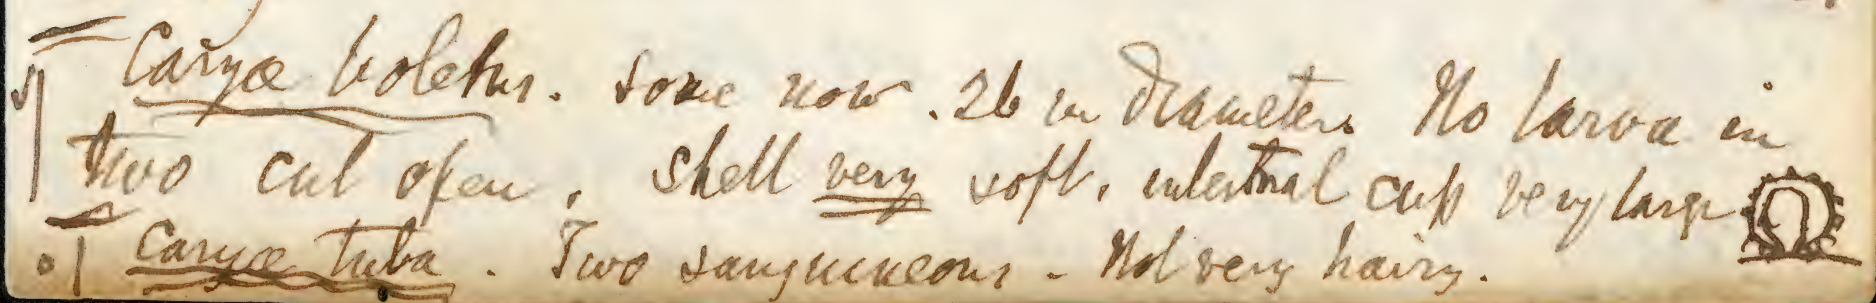 Caryæ boletus. Some now .26 in diameter. No larva in
two cut open. Shell very soft, internal cup very large
Caryæ tuba. Two sanguineous - Not very hairy.